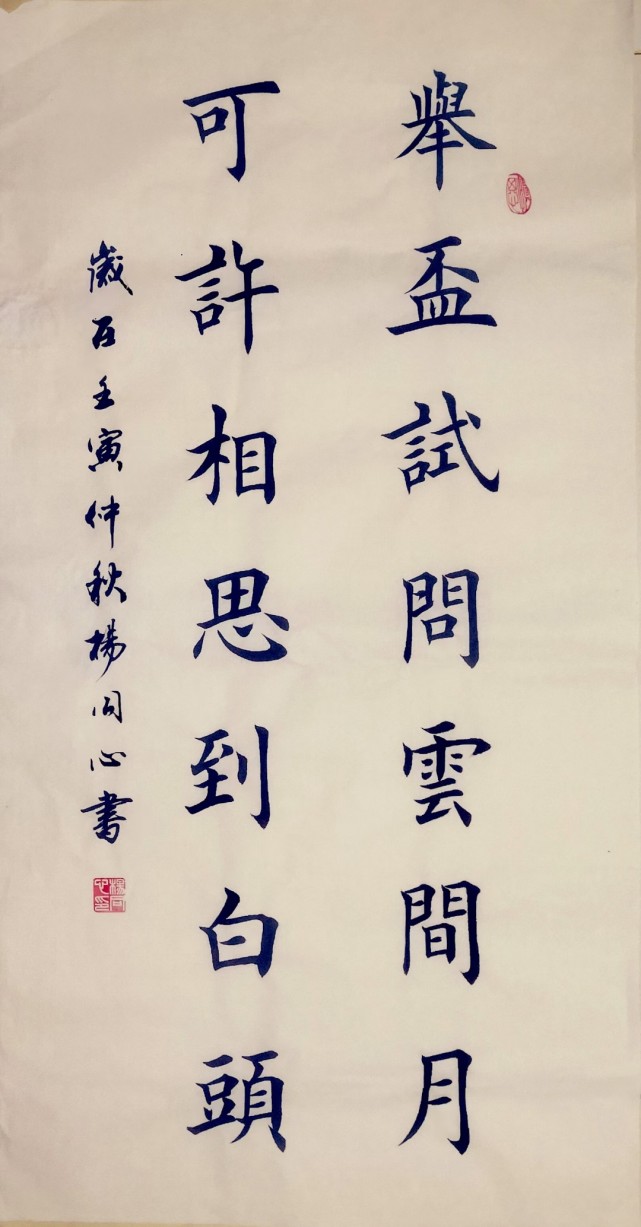 舉盃試問雲間月
可許相思到白頭
歲在壬寅仲秋楊同心書